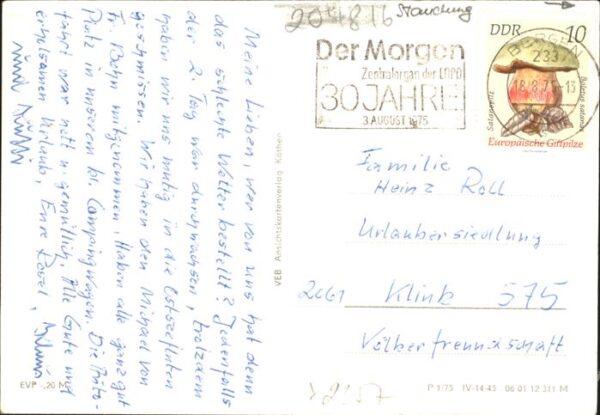 204816 Stauchung
Der Morgen
Zentralorgan der LDPD
30 JAHRE
3. AUGUST 1975
DDR 10
BERGEN
2337
18.8.75-13
Satanspilz
Boletus satanas
Europäische Giftpilze
Meine Lieben, wer von uns hat denn
das schlechte Wetter bestellt? Jedenfalls
der 2. Tag war durchwachsen, trotzdem
haben wir uns mutig in die Ostseefluten
geschmissen. Wir haben den Michael von
Fr. Kuhn mitgenommen. Haben alle ganz gut
Platz in unserem kl. Campingwagen. Die
fahrt war nett u. gemütlich. Alle Gute und
erholsamen Urlaub, Eure
VEB Ansichtskartenverlag Köthen
Familie
Heinz Roll
Urlaubersiedlung
2061 Klink 575
Völkerfreundschaft
EVP -,20 M
P 1/75 IV-14-45 06 01 12 311 M